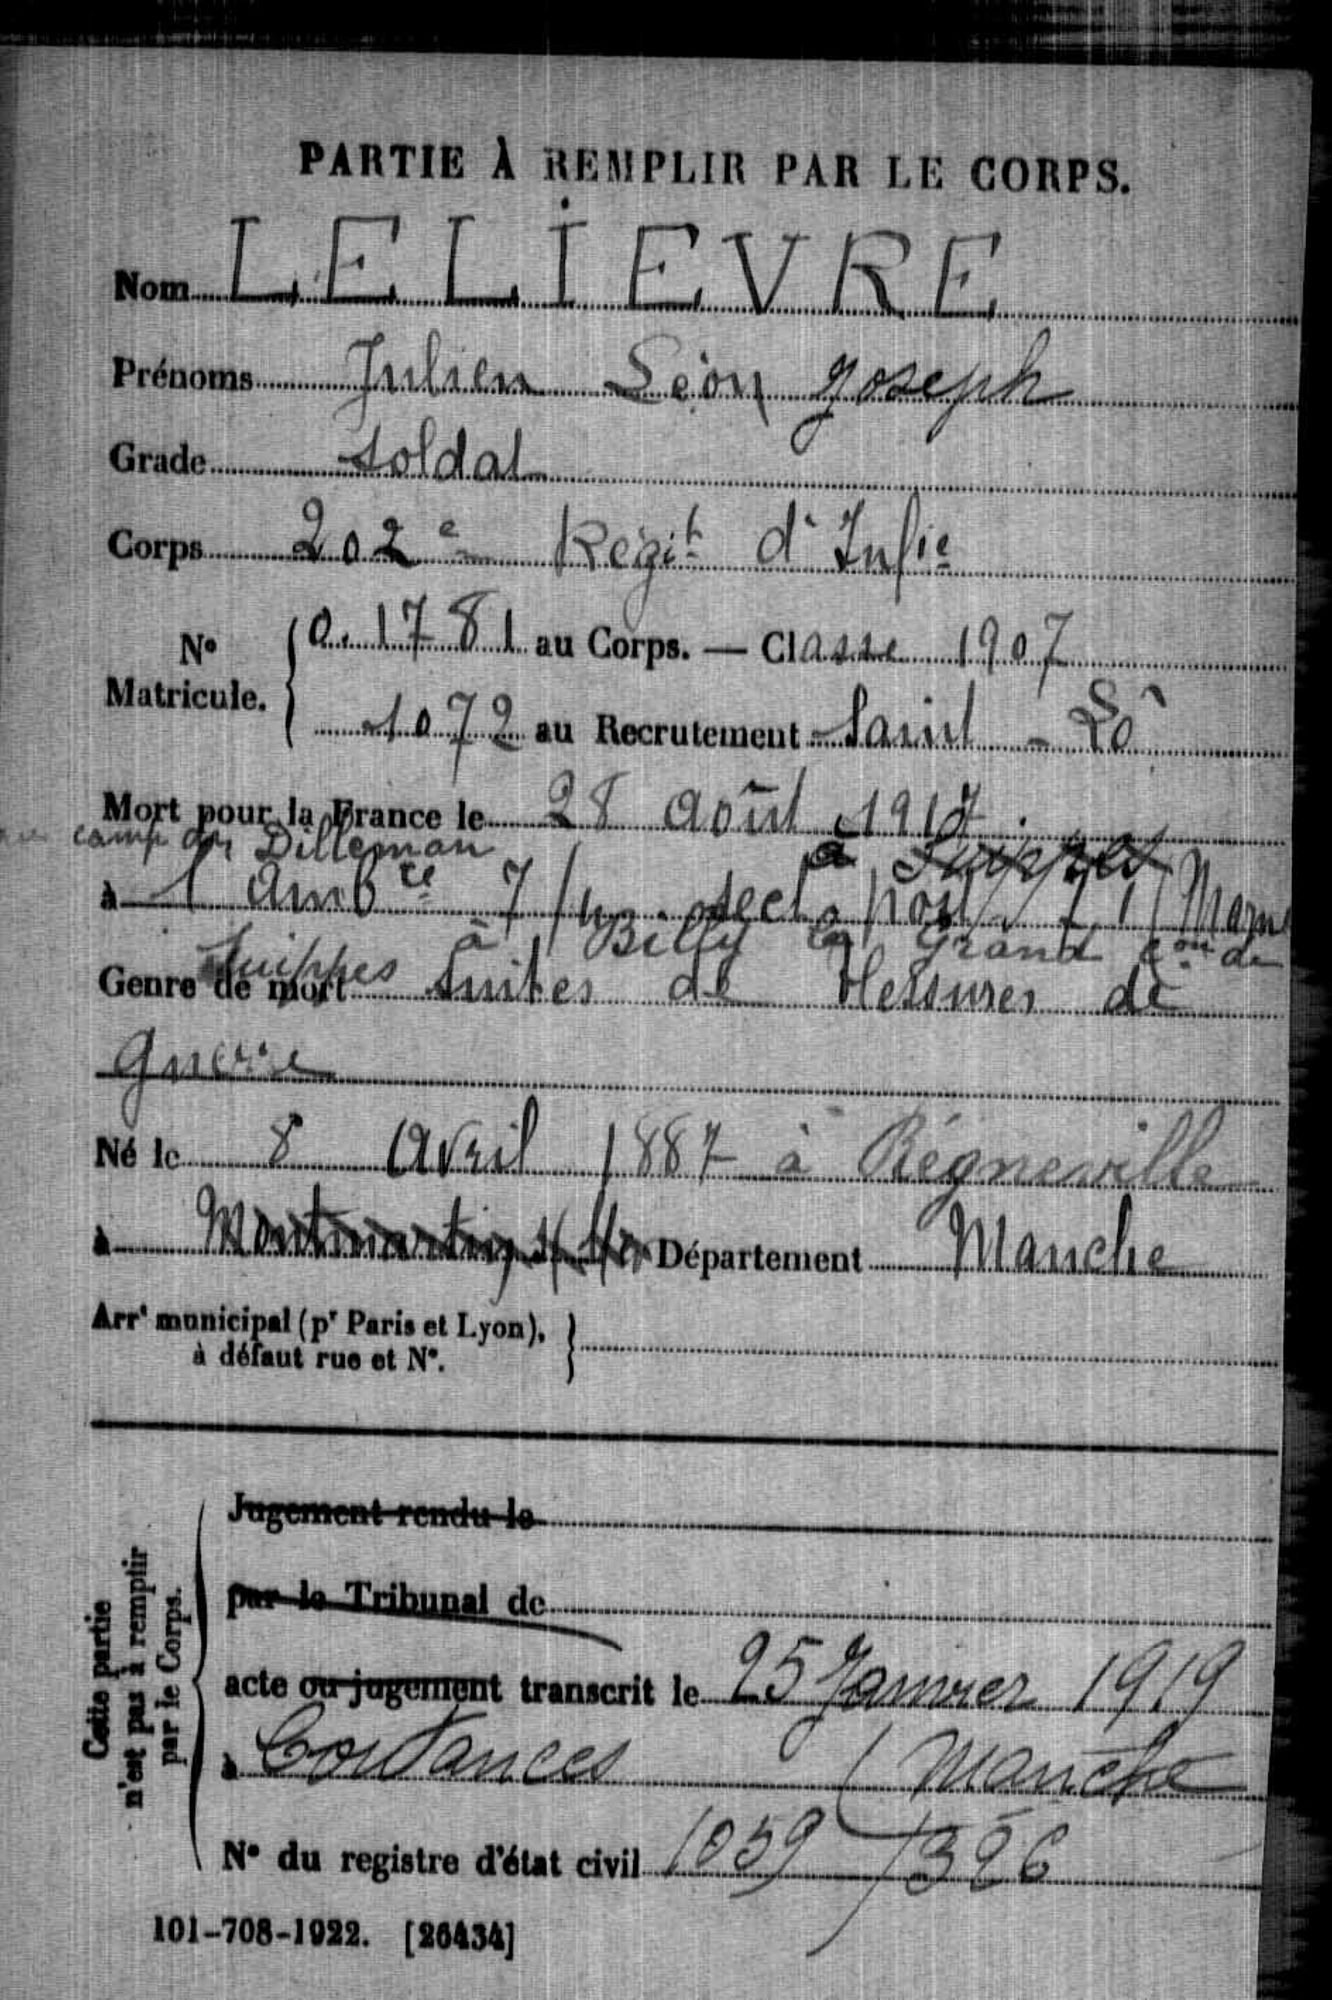 PARTIE À REMPLIR PAR LE CORPS.
Nom LELIEVRE
Prénoms Julien Léon Joseph
Grade soldat
Corps 202e Regit d'Infie
No Matricule. 0.1781 au Corps. — Classe 1907
1072 au Recrutement Saint-Lô
Mort pour la France le 28 août 1917.
camp Dilleman à Suippes
à l'Ambce 7/ sect. post. (Marne
à Billy le Grand con de
Suippes
Genre de mort Suites de blessures de
guerre
Né le 8 Avril 1887 à Régneville
à Montmartin s/ Mer Département Manche
Arrt municipal (pr Paris et Lyon),
à défaut rue et No.
Cette partie
n'est pas à remplir
par le Corps.
Jugement rendu le
par le Tribunal de
acte ou jugement transcrit le 25 Janvier 1919
à Coutances (Manche
No du registre d'état civil 1059/326
101-708-1922. [26434]